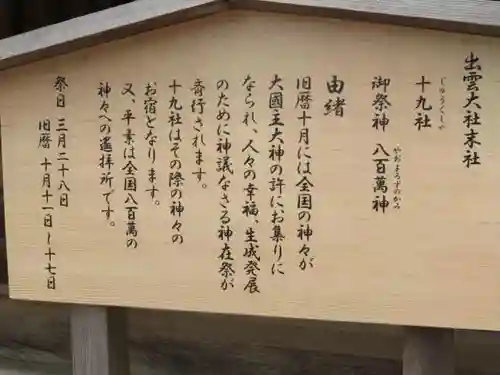 出雲大社末社
じゅうくしゃ
十九社
やおよろずのかみ
御祭神 八百萬神
由緒
旧暦十月には全国の神々が
大國主大神の許にお集りに
なられ、人々の幸福、生成発展
のために神議なさる神在祭が
斎行されます。
十九社はその際の神々の
お宿となります。
又、平素は全国八百萬の
神々への遙拝所です。
祭日 三月二十八日
旧暦 十月十一日～十七日